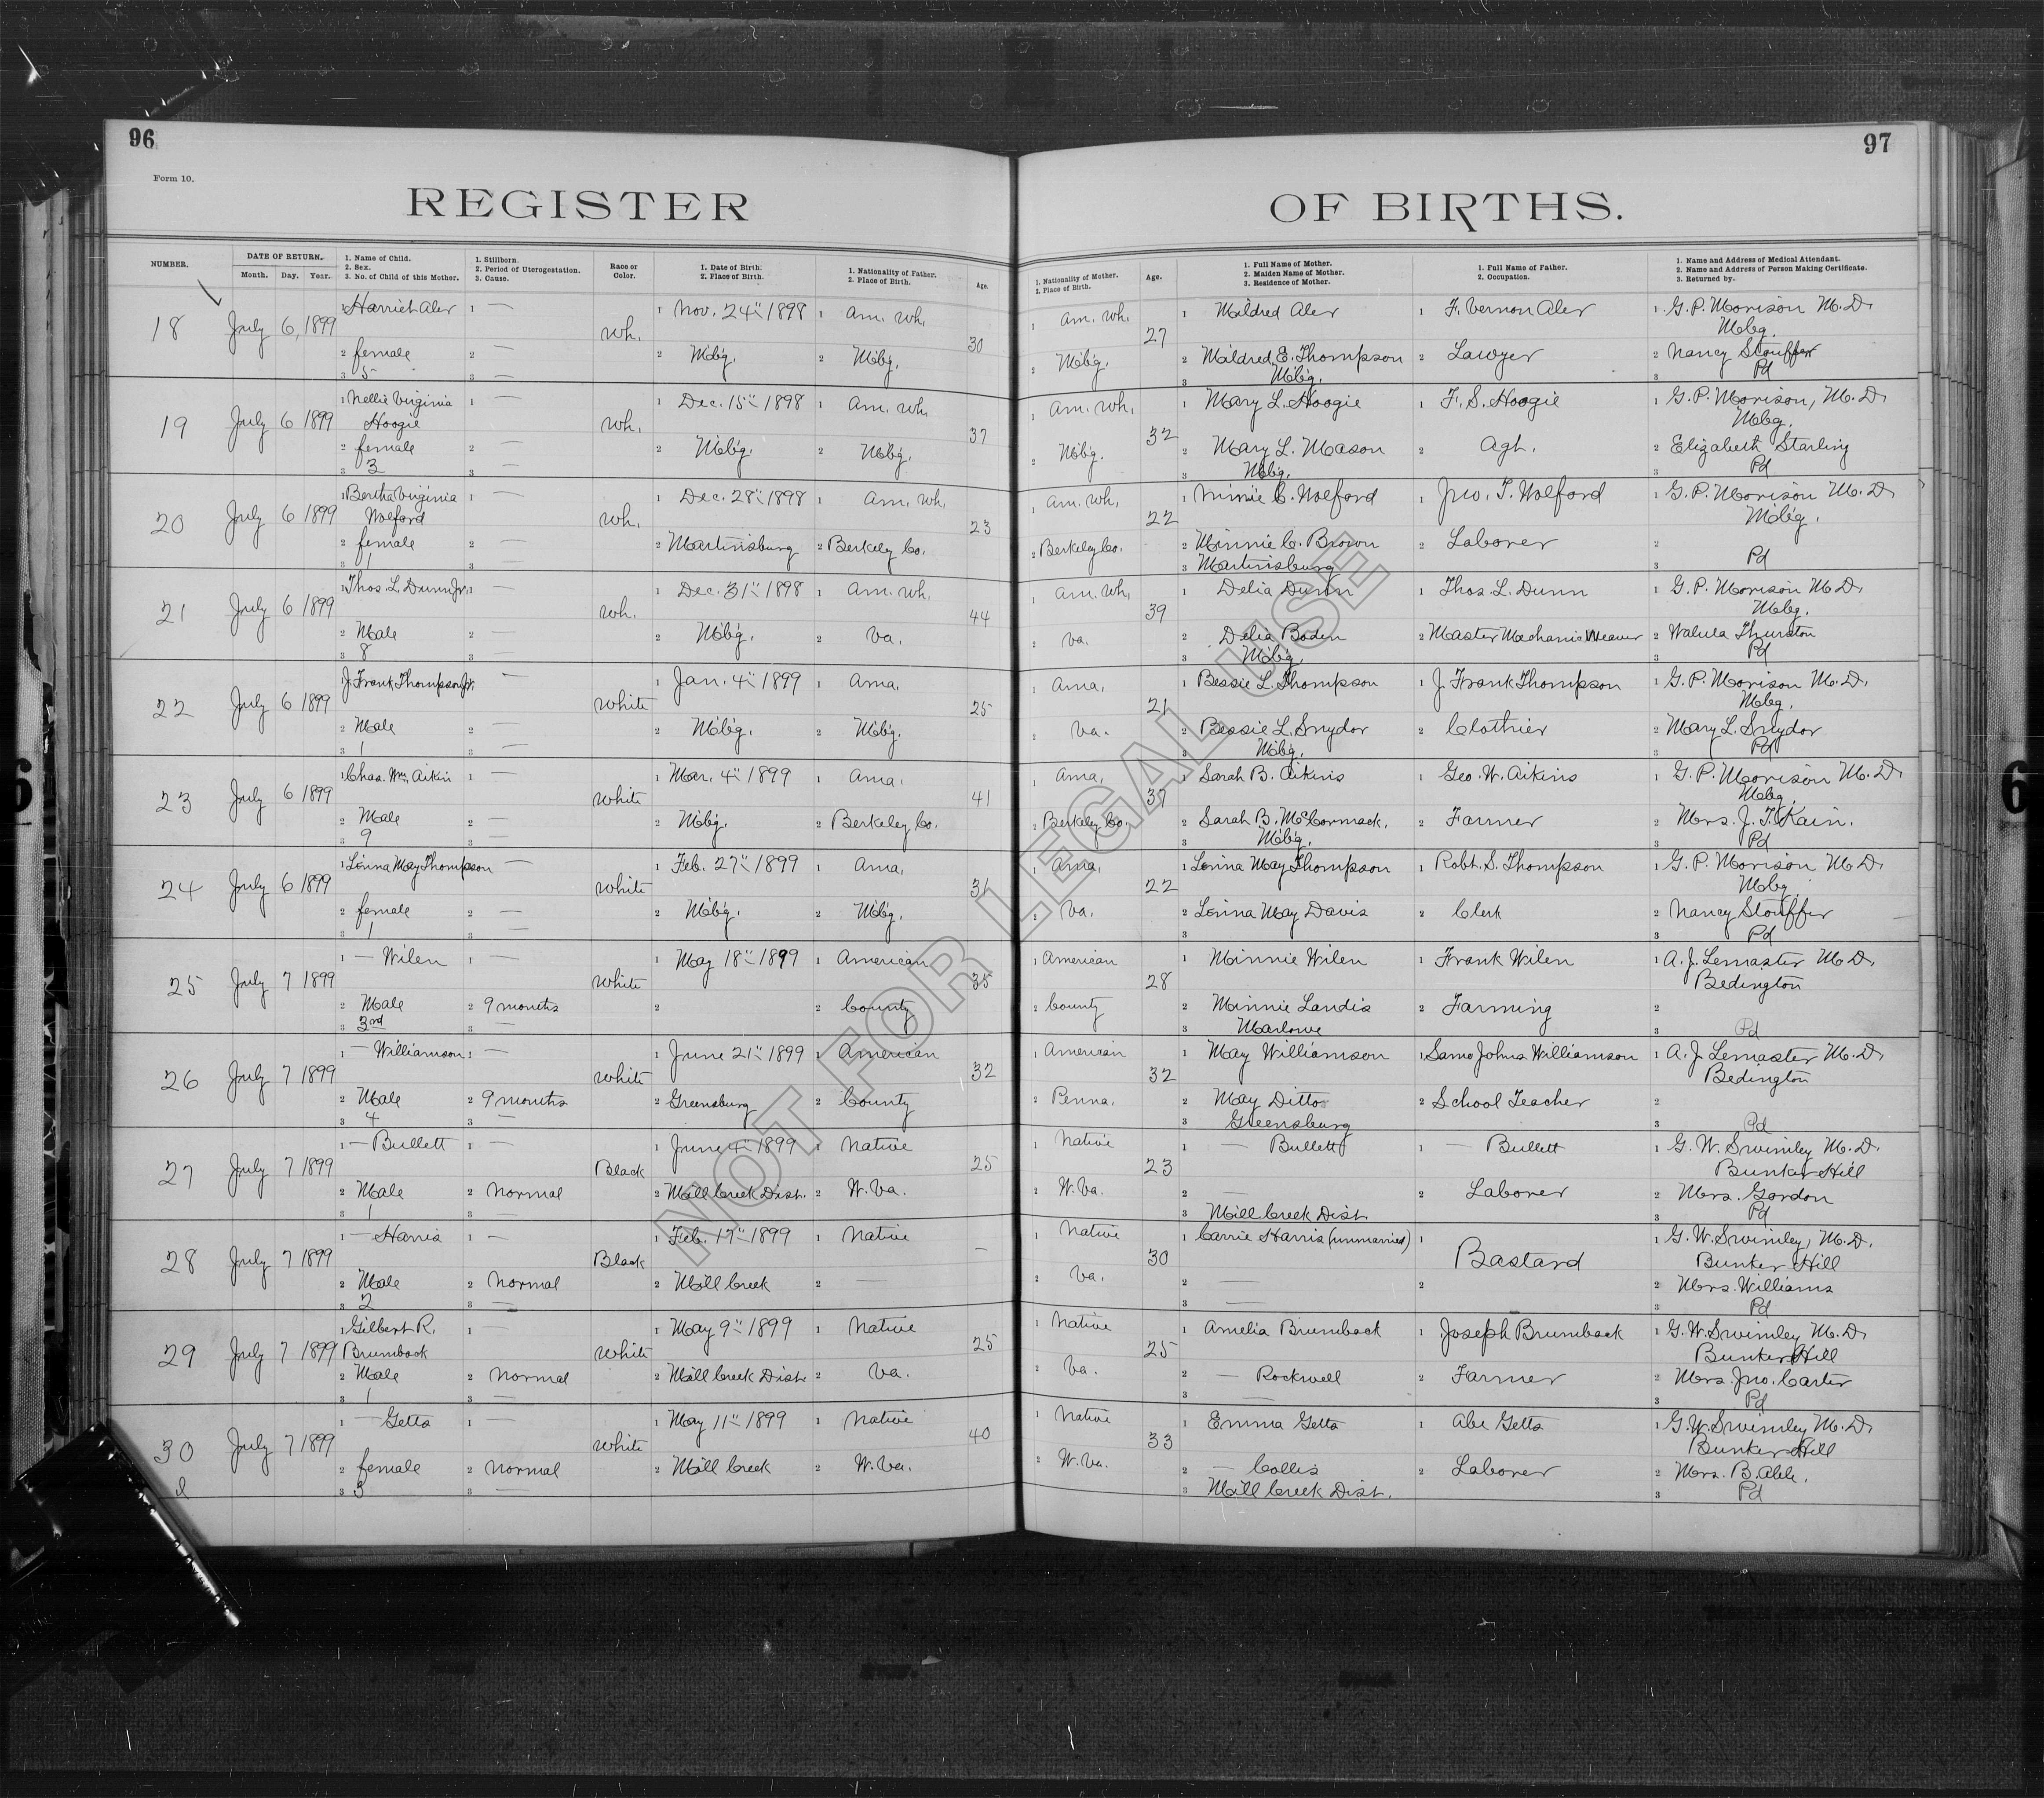 96
97
Form 10.
REGISTER
OF BIRTHS.
NUMBER.
DATE OF RETURN.
Month. Day. Year.
1. Name of Child.
2. Sex.
3. No. of Child of this Mother.
1. Stillborn.
2. Period of Uterogestation.
3. Cause.
Race or
Color.
1. Date of Birth.
2. Place of Birth.
1. Nationality of Father.
2. Place of Birth.
Age.
1. Nationality of Mother.
2. Place of Birth.
Age.
1. Full Name of Mother.
2. Maiden Name of Mother.
3. Residence of Mother.
1. Full Name of Father.
2. Occupation.
1. Name and Address of Medical Attendant.
2. Name and Address of Person Making Certificate.
3. Returned by.
18 July 6, 1899 wh. 30 27
1 Harriet Aler 1 — 1 Nov. 24" 1898 1 Am. Wh. 1 Am. Wh. 1 Mildred Aler 1 F. Vernon Aler 1 G. P. Morison M. D.
Mbg.
2 female 2 — 2 Mbg. 2 Mbg. 2 Mbg. 2 Mildred E. Thompson 2 Lawyer 2 Nancy Stouffer
3 5 3 — 3 Mbg. 3 Pd
19 July 6 1899 wh. 37 32
1 Nellie Virginia 1 — 1 Dec. 15" 1898 1 Am. Wh. 1 Am. Wh. 1 Mary L. Hoogie 1 F. S. Hoogie 1 G. P. Morison, M. D.
Hoogie Mbg.
2 female 2 — 2 Mbg. 2 Mbg. 2 Mbg. 2 Mary L. Mason 2 Agt. 2 Elizabeth Starling
3 3 3 — 3 Mbg. 3 Pd
20 July 6 1899 wh. 23 22
1 Bertha Virginia 1 — 1 Dec. 28" 1898 1 Am. Wh. 1 Am. Wh. 1 Minnie C. Wolford 1 Jno. T. Wolford 1 G. P. Morison M. D.
Wolford Mbg.
2 female 2 — 2 Martinsburg 2 Berkeley Co. 2 Berkeley Co. 2 Minnie C. Brown 2 Laborer 2
3 1 3 — 3 Martinsburg 3 Pd
21 July 6 1899 wh. 44 39
1 Thos. L. Dunn Jr. 1 — 1 Dec. 31" 1898 1 Am. Wh. 1 Am. Wh. 1 Delia Dunn 1 Thos. L. Dunn 1 G. P. Morison M. D.
Mbg.
2 Male 2 — 2 Mbg. 2 Va. 2 Va. 2 Delia Boden 2 Master Mechanic Weaver 2 Walula Thurston
3 8 3 — 3 Mbg. 3 Pd
22 July 6 1899 white 25 21
1 J. Frank Thompson Jr. — 1 Jan. 4" 1899 1 Ama. 1 Ama. 1 Bessie L. Thompson 1 J. Frank Thompson 1 G. P. Morison M. D.
Mbg.
2 Male 2 — 2 Mbg. 2 Mbg. 2 Va. 2 Bessie L. Snydor 2 Clothier 2 Mary L. Snydor
3 1 3 — 3 Mbg. 3 Pd
23 July 6 1899 white 41 37
1 Chas. Wm. Aikin 1 — 1 Mar. 4" 1899 1 Ama. 1 Ama. 1 Sarah B. Aikins 1 Geo. W. Aikins 1 G. P. Morison M. D.
Mbg.
2 Male 2 — 2 Mbg. 2 Berkeley Co. 2 Berkeley Co. 2 Sarah B. McCormack. 2 Farmer 2 Mrs. J. T. Kain.
3 9 3 — 3 Mbg. 3 Pd
24 July 6 1899 white 31 22
1 Lenna May Thompson — 1 Feb. 27" 1899 1 Ama. 1 Ama. 1 Lenna May Thompson 1 Robt. S. Thompson 1 G. P. Morison M. D.
Mbg.
2 female 2 — 2 Mbg. 2 Mbg. 2 Va. 2 Lenna May Davis 2 Clerk 2 Nancy Stouffer
3 1 3 — 3 3 Pd
25 July 7 1899 white 35 28
1 — Wilen 1 — 1 May 18" 1899 1 American 1 American 1 Minnie Wilen 1 Frank Wilen 1 A. J. Lemaster M. D.
Bedington
2 Male 2 9 months 2 2 County 2 County 2 Minnie Landis 2 Farming 2
3 3rd 3 — 3 Marlowe 3 Pd
26 July 7 1899 white 32 32
1 — Williamson 1 — 1 June 21" 1899 1 American 1 American 1 May Williamson 1 Samo Johns Williamson 1 A. J. Lemaster M. D.
Bedington
2 Male 2 9 months 2 Greensburg 2 County 2 Penna. 2 May Ditto 2 School Teacher 2
3 4 3 — 3 Greensburg 3 Pd
27 July 7 1899 Black 25 23
1 — Bullett 1 — 1 June 4" 1899 1 Native 1 Native 1 — Bullett 1 — Bullett 1 G. W. Swimley M. D.
Bunker Hill
2 Male 2 Normal 2 Mill Creek Dist. 2 W. Va. 2 W. Va. 2 — 2 Laborer 2 Mrs. Gordon
3 1 3 — 3 Mill Creek Dist. 3 Pd
28 July 7 1899 Black — 30
1 — Harris 1 — 1 Feb. 17" 1899 1 Native 1 Native 1 Carrie Harris (unmarried) 1 Bastard 1 G. W. Swimley, M. D.
Bunker Hill
2 Male 2 Normal 2 Mill Creek 2 — 2 Va. 2 2 2 Mrs. Williams
3 2 3 — 3 — 3 Pd
29 July 7 1899 white 25 25
1 Gilbert R. 1 — 1 May 9" 1899 1 Native 1 Native 1 Amelia Brumback 1 Joseph Brumback 1 G. W. Swimley M. D.
Brumback Bunker Hill
2 Male 2 Normal 2 Mill Creek Dist. 2 Va. 2 Va. 2 — Rockwell 2 Farmer 2 Mrs. Jno. Carter
3 1 3 — 3 — 3 Pd
30 July 7 1899 white 40 33
1 — Getts 1 — 1 May 11" 1899 1 Native 1 Native 1 Emma Getts 1 Abe Getts 1 G. W. Swimley M. D.
Bunker Hill
2 female 2 Normal 2 Mill Creek 2 W. Va. 2 W. Va. 2 — Collis 2 Laborer 2 Mrs. B. Able.
3 3 3 — 3 Mill Creek Dist. 3 Pd
NOT FOR LEGAL USE
6
6